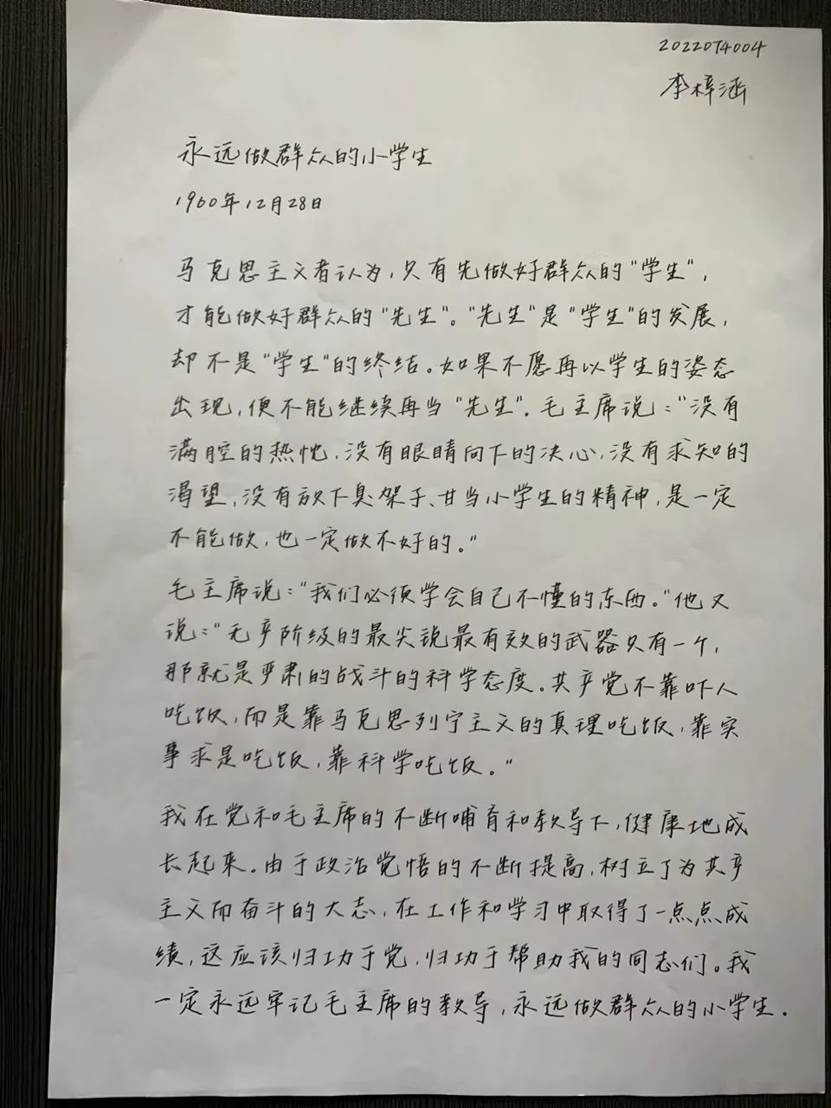 2022074004
李梓涵
永远做群众的小学生
1960年12月28日
马克思主义者认为,只有先做好群众的"学生",
才能做好群众的"先生"。"先生"是"学生"的发展,
却不是"学生"的终结。如果不愿再以学生的姿态
出现,便不能继续再当"先生".毛主席说:"没有
满腔的热忱,没有眼睛向下的决心,没有求知的
渴望,没有放下臭架子、甘当小学生的精神,是一定
不能做,也一定做不好的。"
毛主席说:"我们必须学会自己不懂的东西。"他又
说:"无产阶级的最尖锐最有效的武器只有一个,
那就是严肃的战斗的科学态度。共产党不靠吓人
吃饭,而是靠马克思列宁主义的真理吃饭,靠实
事求是吃饭,靠科学吃饭。"
我在党和毛主席的不断哺育和教导下,健康地成
长起来。由于政治觉悟的不断提高,树立了为共产
主义而奋斗的大志,在工作和学习中取得了一点点成
绩,这应该归功于党,归功于帮助我的同志们。我
一定永远牢记毛主席的教导,永远做群众的小学生.